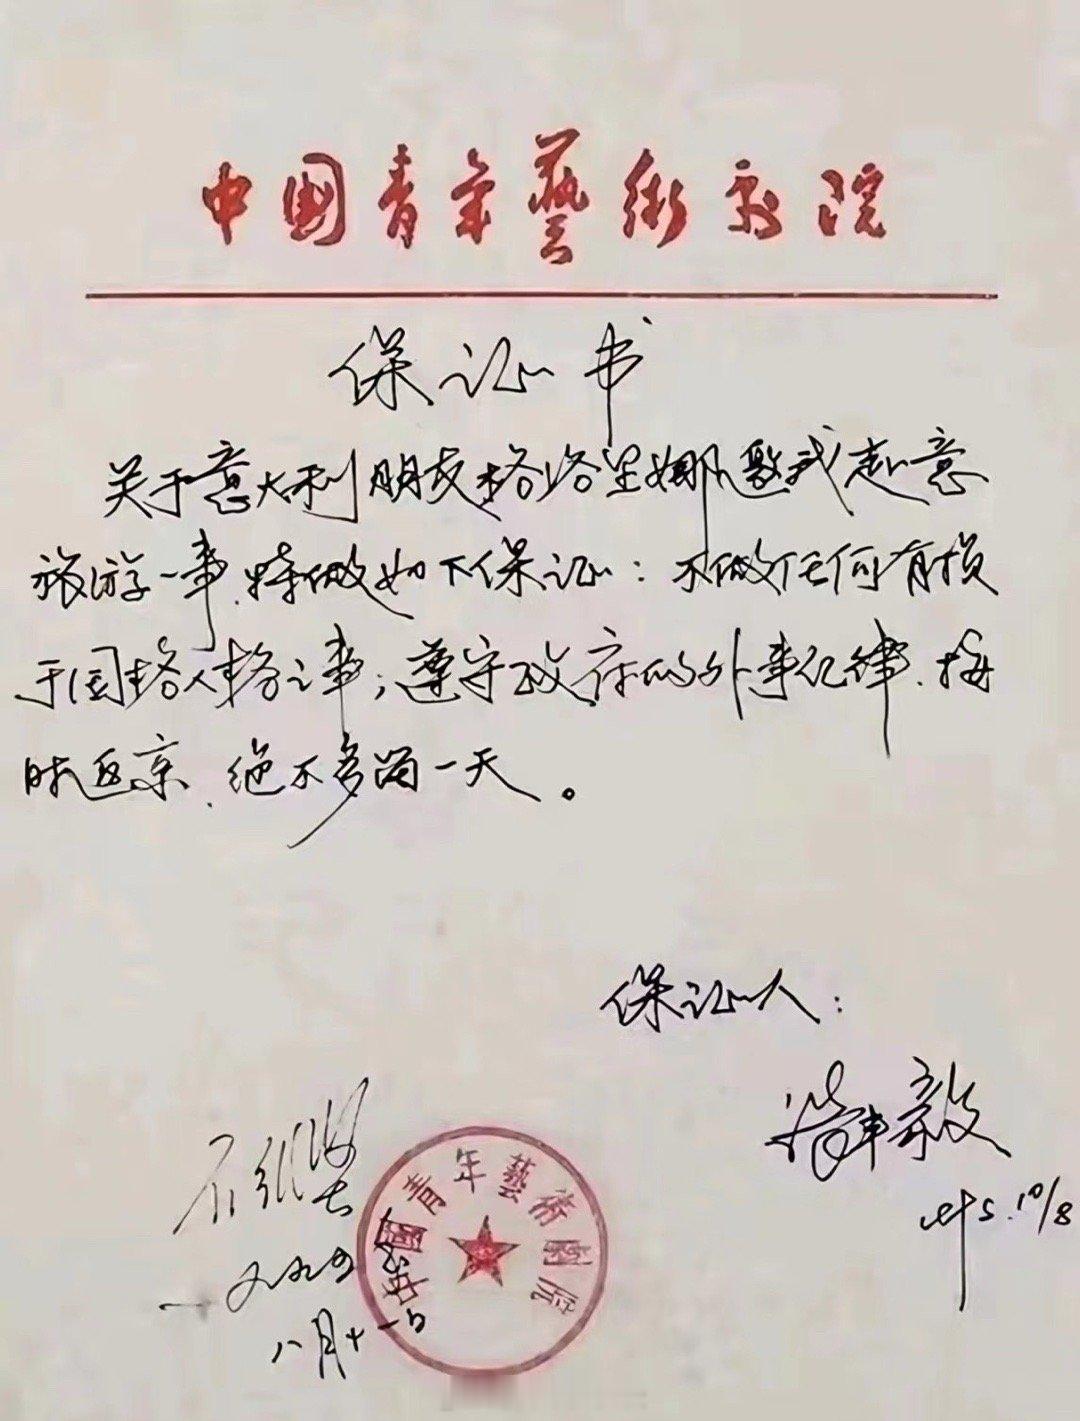 中國青年藝術剧院
保证书
关于意大利朋友格洛里娜邀我赴意
旅游一事,特做如下保证:不做任何有损
于国格人格之事;遵守政府的外事纪律,按
时返京,绝不多留一天。
保证人:
毅
10/8
石维坚
一九九五
八月十一日
中國青年藝術劇院